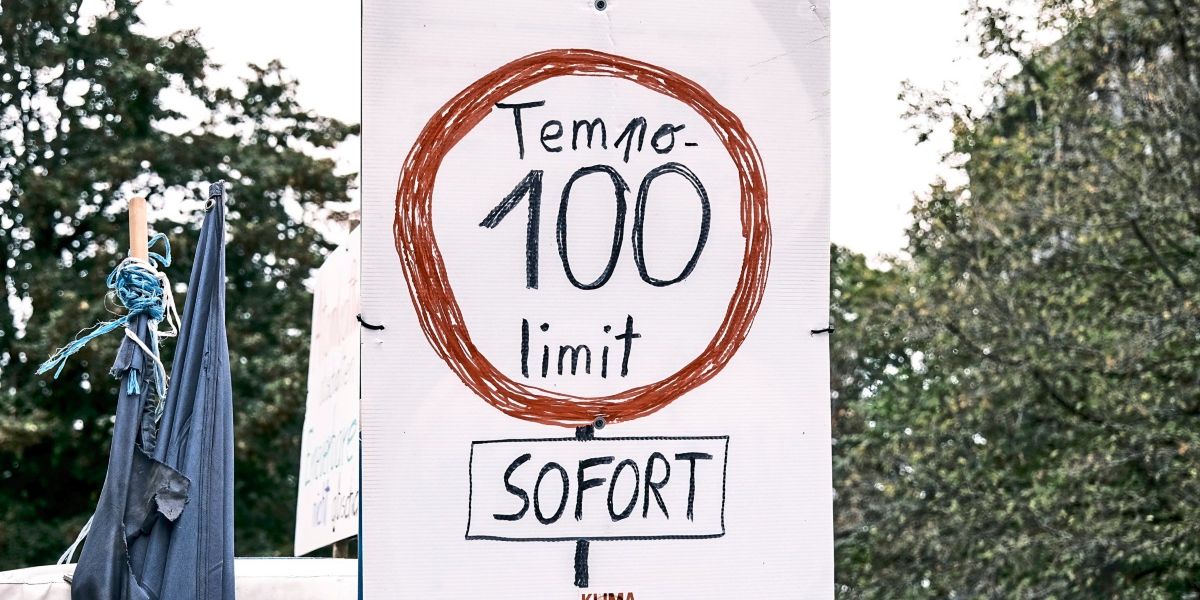 Tempo-
100
limit
SOFORT
KLIMA